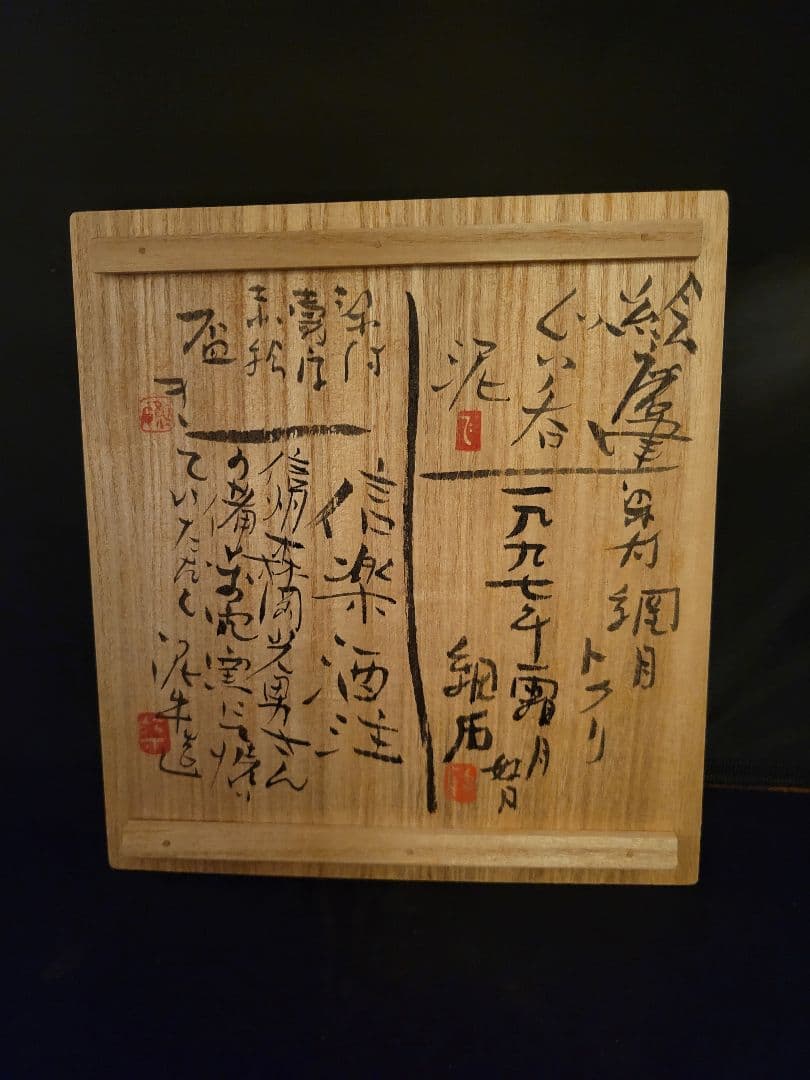 絵唐津
ぐい呑
泥
染付 網目
トクリ
一九九七年霜月
如月
染付
寿字
赤絵
盃
信楽酒注
信州森岡光男さん
の備前窯にて焼い
ていただく 泥牛造